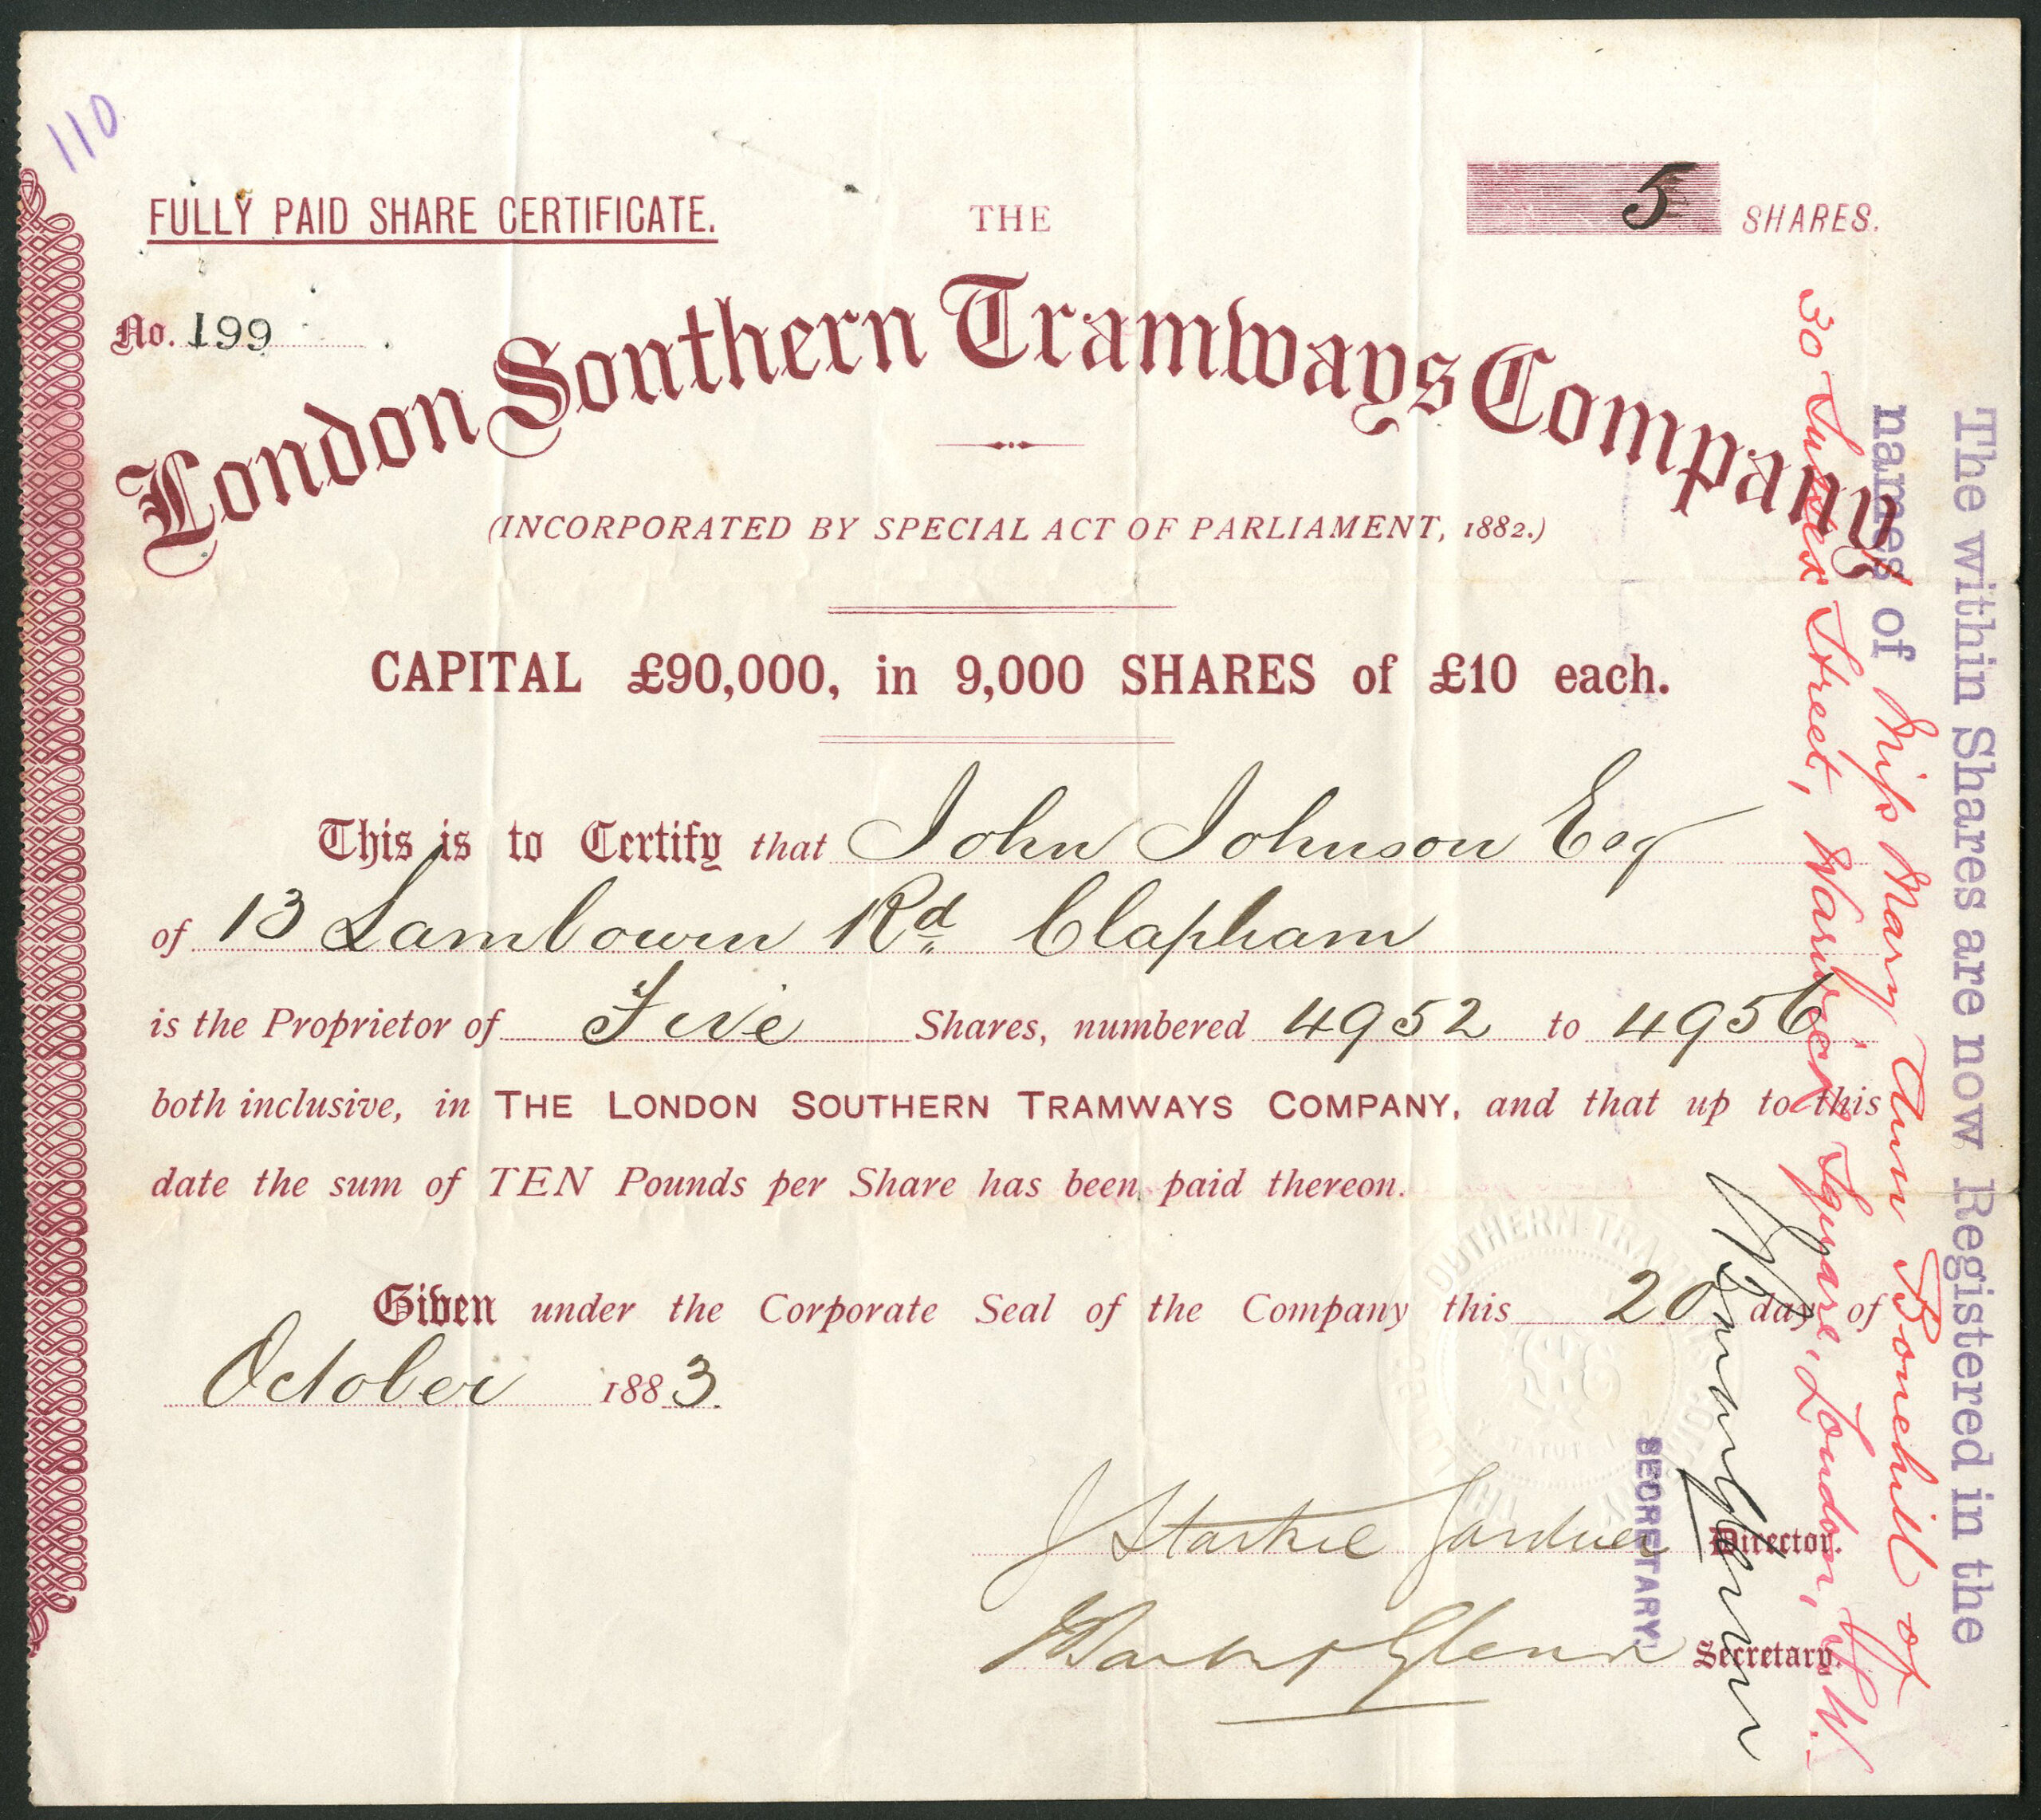 110
FULLY PAID SHARE CERTIFICATE.
THE
5 SHARES.
No. 199
London Southern Tramways Company
(INCORPORATED BY SPECIAL ACT OF PARLIAMENT, 1882.)
CAPITAL £90,000, in 9,000 SHARES of £10 each.
This is to Certify that John Johnson Esq
of 13 Lambourn Rd. Clapham
is the Proprietor of Five Shares, numbered 4952 to 4956
both inclusive, in THE LONDON SOUTHERN TRAMWAYS COMPANY, and that up to this
date the sum of TEN Pounds per Share has been paid thereon.
Given under the Corporate Seal of the Company this 20 day of
October 1883.
J Starkie Gardner Director.
Glenn Secretary.
The within Shares are now Registered in the
names of Miss Mary Ann Bonehill of
30 Sussex Street, Warwick Square, London, S.W.
Glenn
SECRETARY.
SOUTHERN TRAM